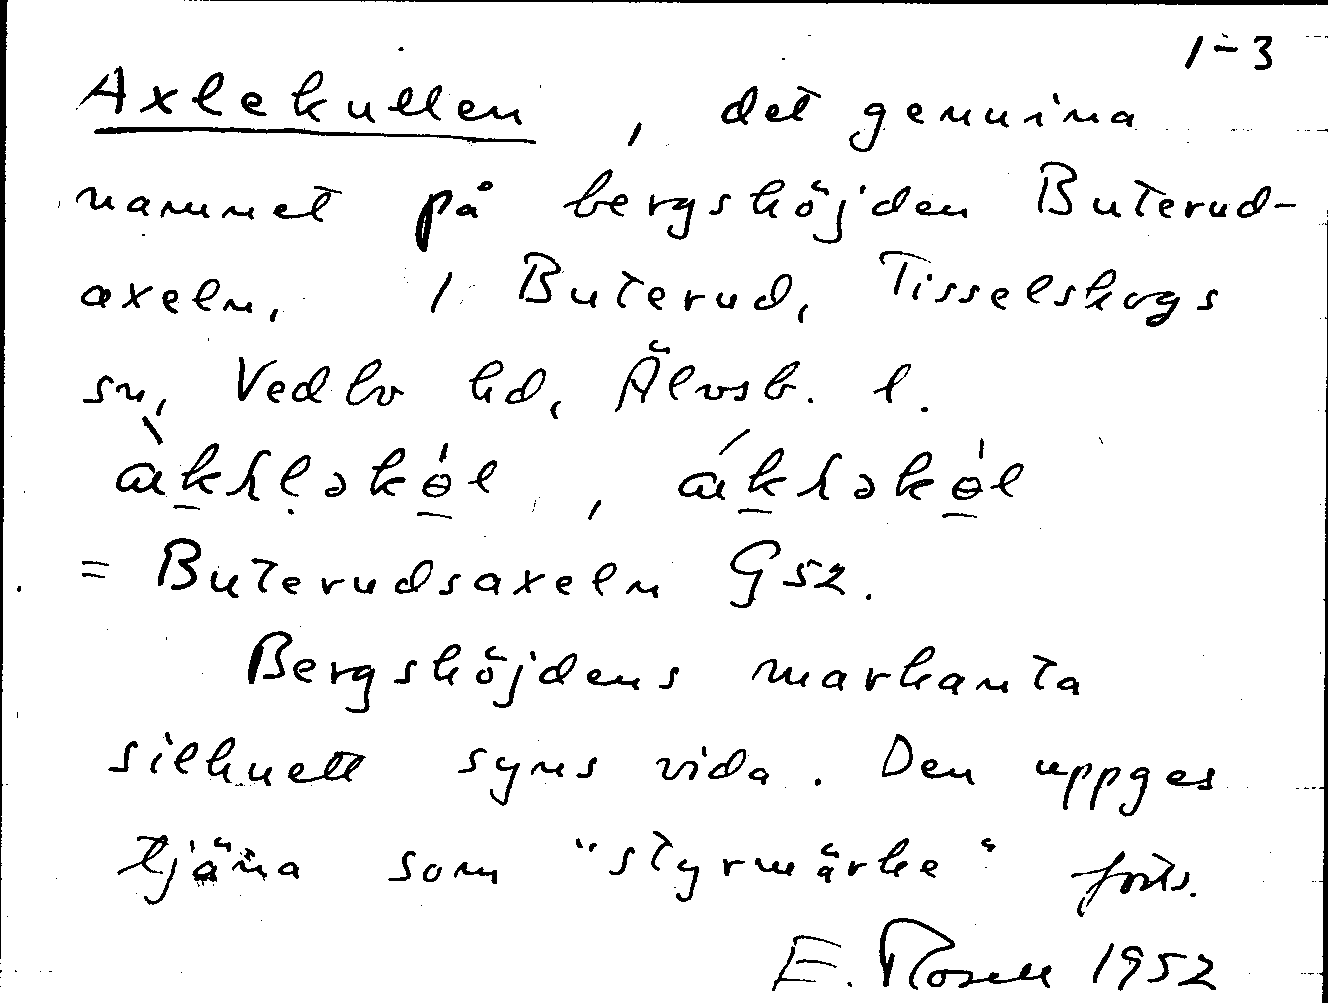 1-3
Axlekullen, det genuina
namnet på bergshöjden Buterud-
axeln, i Buterud, Tisselskogs
sn, Vedbo hd, Älvsb. l.
= Buterudsaxeln Gsz.
Bergshöjdens markanta
silhuett syns vida. Den uppges
tjäna som "styrmärke" forts.
E. Rosell 1952